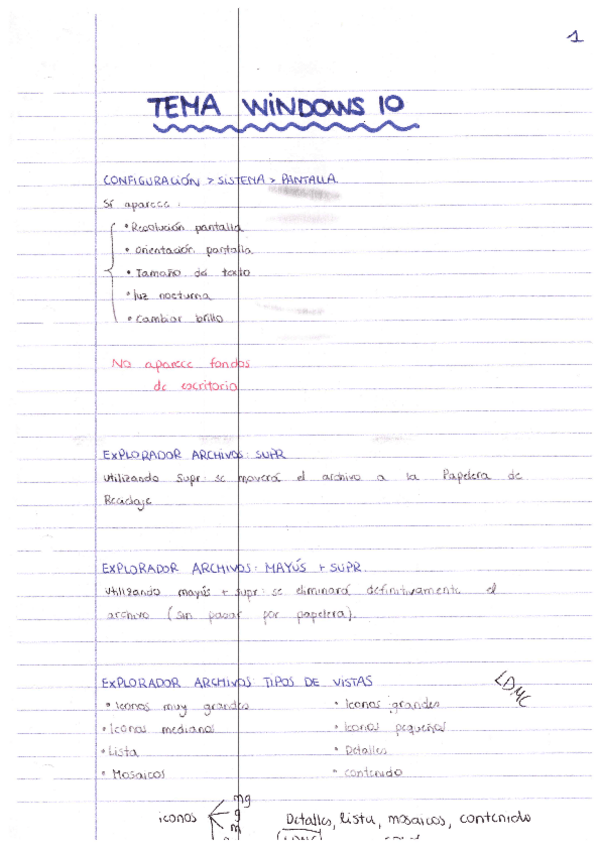 1
TEMA WINDOWS 10
CONFIGURACIÓN > SISTEMA > PANTALLA
Sí aparece:
• Resolución pantalla
• Orientación pantalla
• Tamaño de texto
• luz nocturna
• Cambiar brillo
No aparece fondos
de escritorio
EXPLORADOR ARCHIVOS: SUPR
Utilizando Supr: se moverá el archivo a la Papelera de
Reciclaje
EXPLORADOR ARCHIVOS: MAYÚS + SUPR.
Utilizando mayús + supr: se eliminará definitivamente el
archivo (sin pasar por papelera).
EXPLORADOR ARCHIVOS: TIPOS DE VISTAS
LDMC
• Iconos muy grandes • Iconos grandes
• Iconos medianos • Iconos pequeños
• Lista • Detalles
• Mosaicos • Contenido
mg
iconos g Detalles, lista, mosaicos, contenido
m